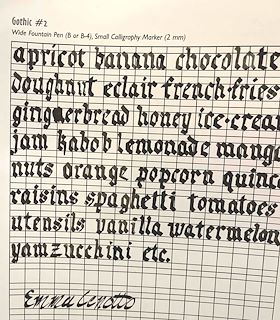 Gothic #2
Wide Fountain Pen (B or B-4), Small Calligraphy Marker (2 mm)
apricot banana chocolate
doughnut eclair french-fries
gingerbread honey ice-crea
jam kabob lemonade mango
nuts orange popcorn quinc
raisins spaghetti tomatoes
utensils vanilla watermelon
yam zucchini etc.
Emma